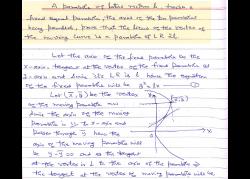 A parabola of latus rectum l, touches a
fixed equal parabola, the axes of the two parabolas
being parallel, prove that the locus of the vertex of
the moving curve is a parabola of LR 2l.
Let the axis of the fixed parabola be the
x-axis, tangent at the vertex of the fixed parabola as
y-axis and since its LR is l, hence the equation
of the fixed parabola will be y² = lx
Let (x̄, ȳ) be the vertex
of the moving parabola and
since the axis of the moving
parabola is || to x-axis and
passes through ȳ hence the
axis of the moving parabola will
be y = ȳ so and as the tangent
at the vertex is ⊥ to the axis of the parabola ⇒
the tangent at the vertex of moving parabola will be